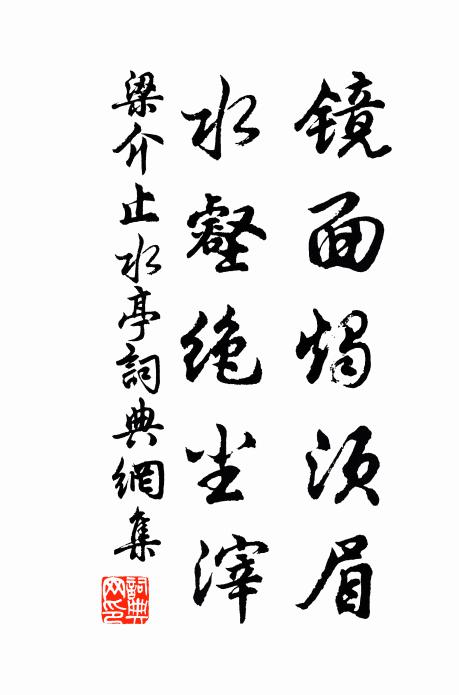 镜面烛须眉
水壑绝尘滓
梁介止水亭詞典網集
詞典网印